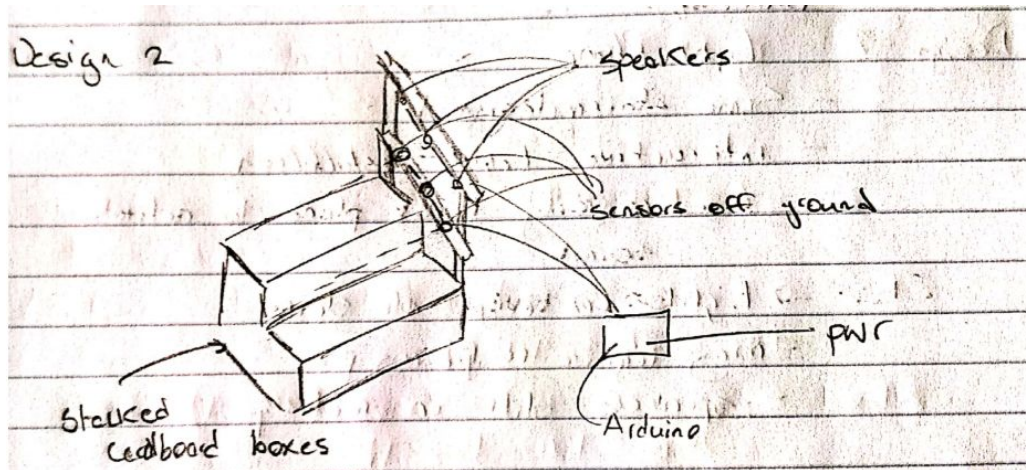 Design 2
speakers
sensors off ground
pwr
Arduino
Stacked
cardboard boxes